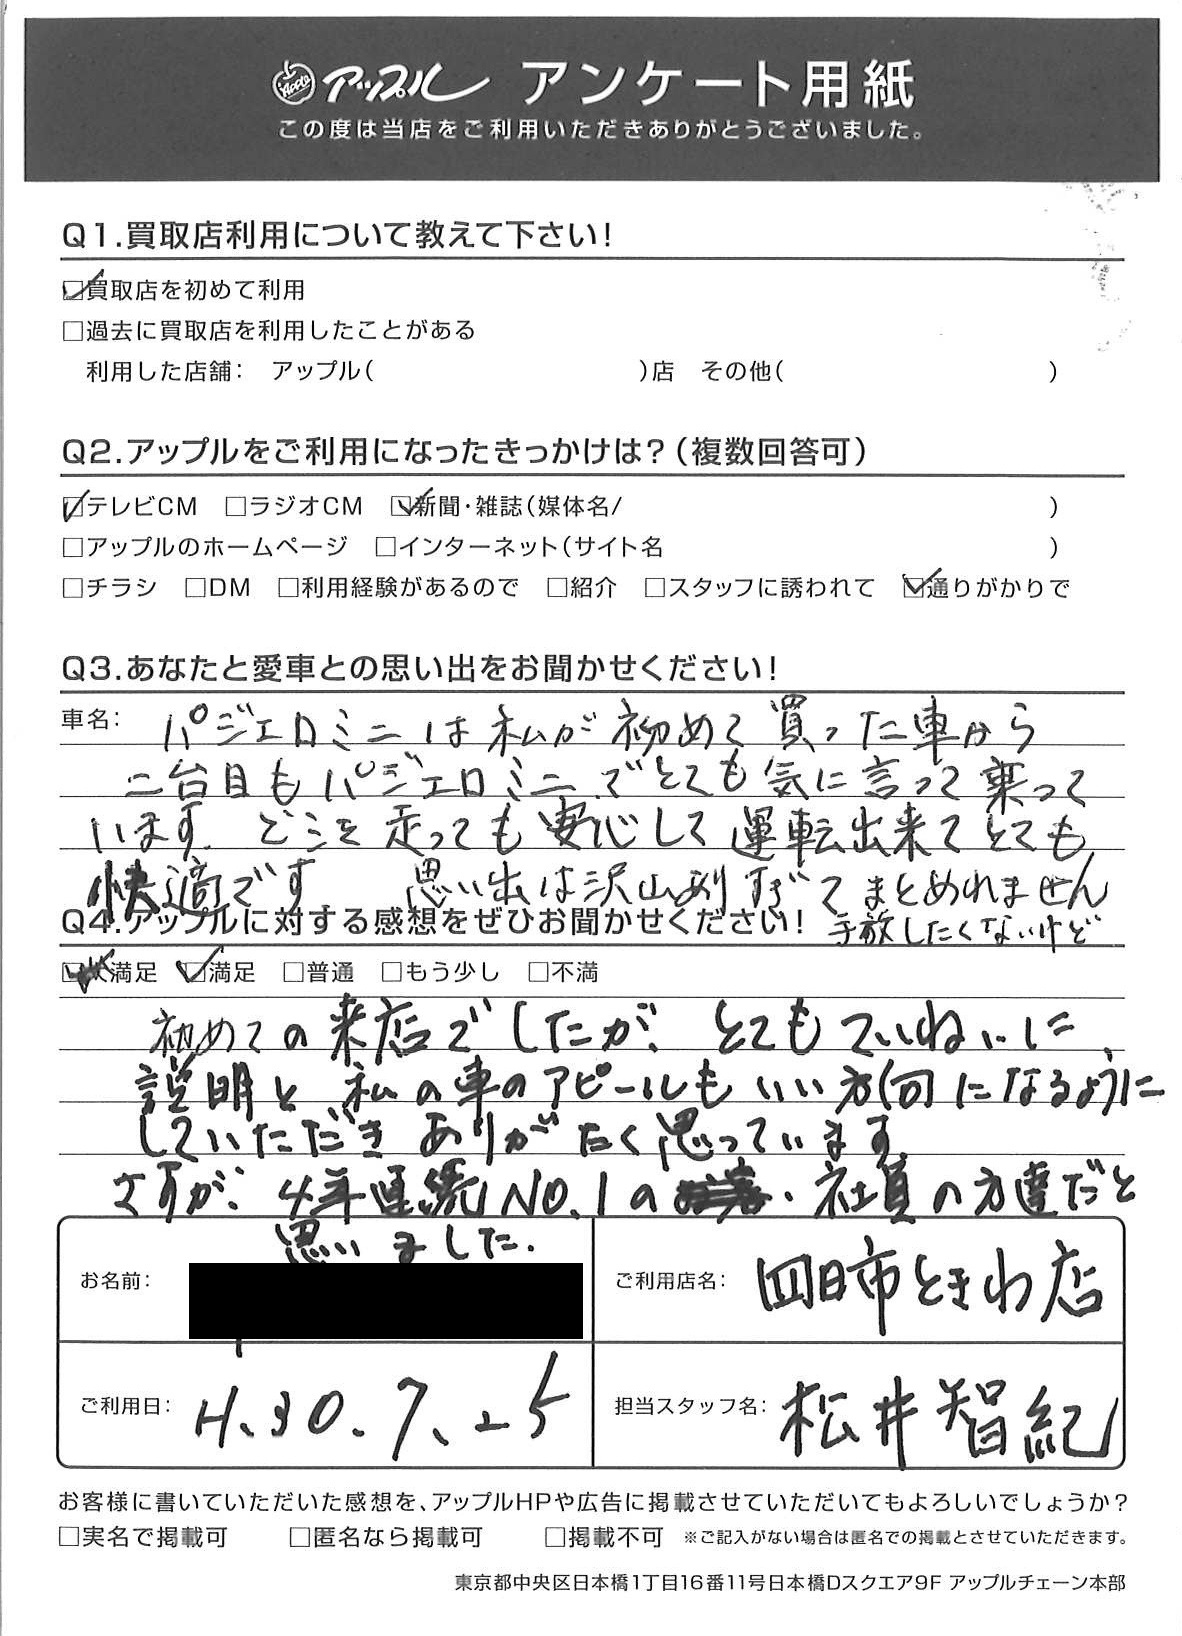 Apple アップル アンケート用紙
この度は当店をご利用いただきありがとうございました。
Q1.買取店利用について教えて下さい!
☑買取店を初めて利用
□過去に買取店を利用したことがある
利用した店舗: アップル( )店 その他( )
Q2.アップルをご利用になったきっかけは?(複数回答可)
☑テレビCM □ラジオCM ☑新聞・雑誌(媒体名/ )
□アップルのホームページ □インターネット(サイト名 )
□チラシ □DM □利用経験があるので □紹介 □スタッフに誘われて ☑通りがかりで
Q3.あなたと愛車との思い出をお聞かせください!
車名: パジェロミニは私が初めて買った車から
二台目もパジェロミニでとても気に言って乗って
います。どこを走っても安心して運転出来てとても
快適です 思い出は沢山ありすぎてまとめれません
Q4.アップルに対する感想をぜひお聞かせください! 手放したくないけど
☑大満足 ☑満足 □普通 □もう少し □不満
初めての来店でしたが、とてもていねいに、
説明と私の車のアピールもいい方向になるように
していただきありがたく思っています。
さすが、4年連続NO.1の 、社員の方達だと
思いました.
お名前:
ご利用店名: 四日市ときわ店
ご利用日: H.30.7.25
担当スタッフ名: 松井智紀
お客様に書いていただいた感想を、アップルHPや広告に掲載させていただいてもよろしいでしょうか?
□実名で掲載可 □匿名なら掲載可 □掲載不可 ※ご記入がない場合は匿名での掲載とさせていただきます。
東京都中央区日本橋1丁目16番11号日本橋Dスクエア9F アップルチェーン本部